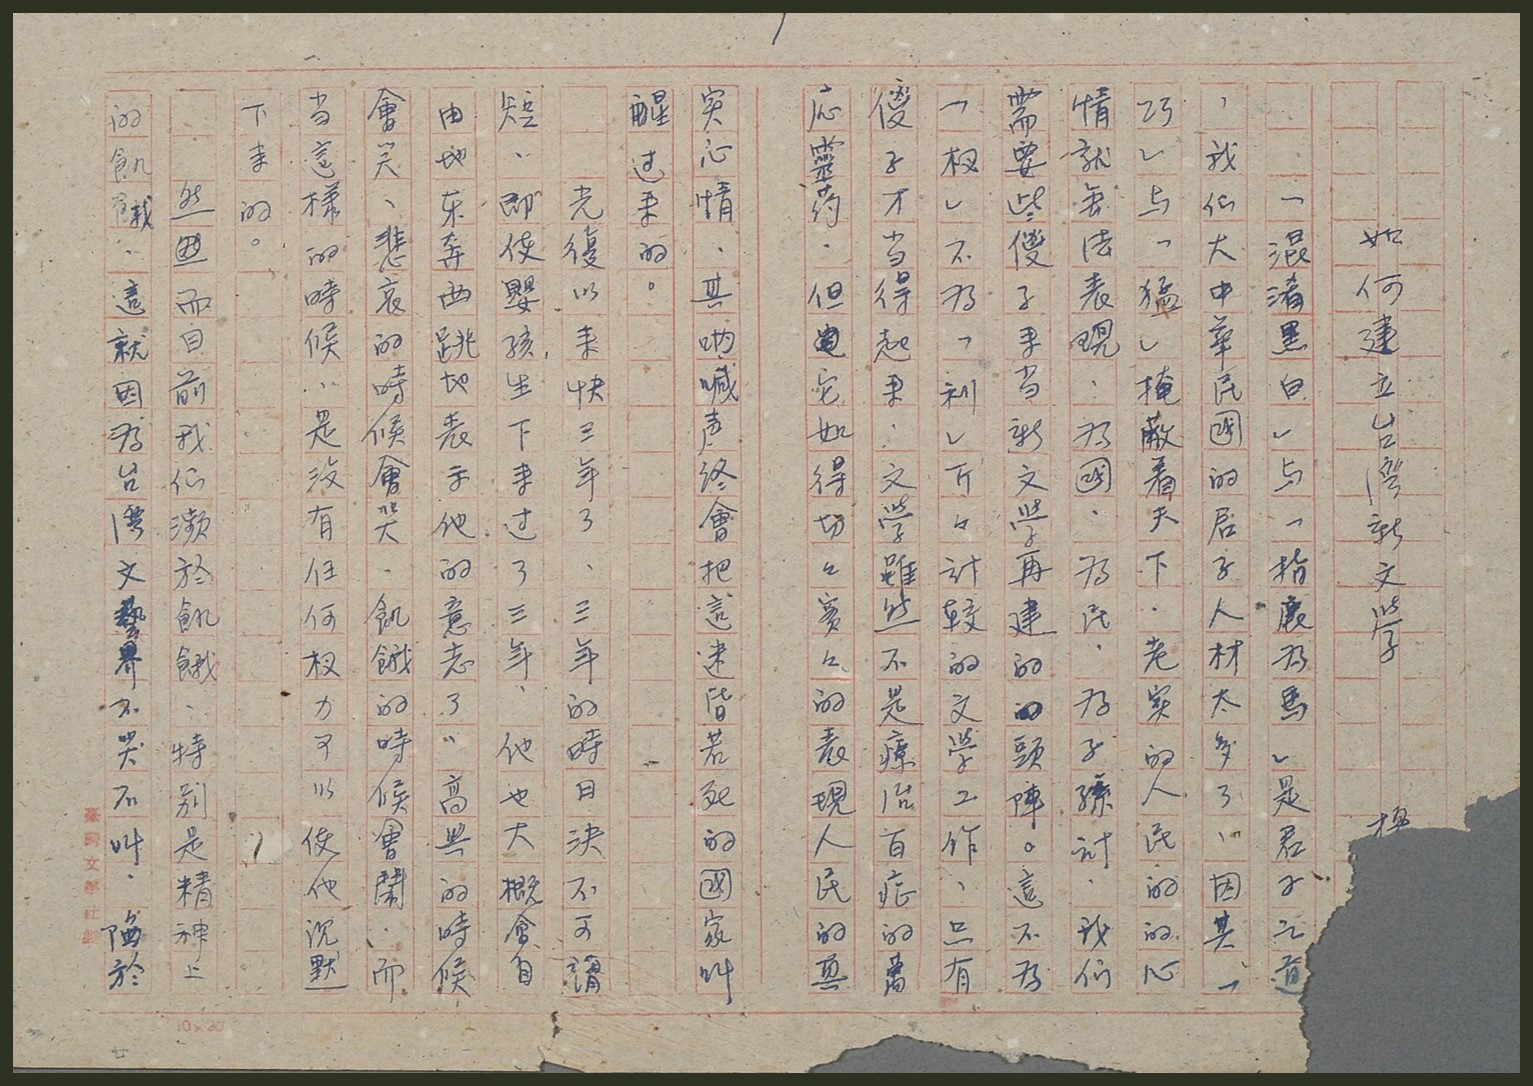 如何建立台湾新文学
「混淆黒白」与「指鹿為馬」是君子之道
，我们大中華民國的君子人材太多了，因其「
巧」与「猛」掩蔽着天下．老実的人民的心
情就無法表現．為國．為民．為子孫計．我们
需要些傻子来当新文学再建的頭陣。這不為
「权」不為「利」斤々計較的文学工作，只有
傻子才当得起来．文学雖然不是療治百症的萬
応靈药．但它如得切々实々的表現人民的真
实心情．其吶喊声終會把這迷昏若死的國家叫
醒过来的。
光復以来快三年了、三年的時日決不可謂
短、即使嬰孩生下来过了三年、他也大概會自
由地东奔西跳地表示他的意志了．高興的時候
會笑、悲哀的時候會哭．飢餓的時候會鬧．而
当這樣的時候，是没有任何权力可以使他沉默
下来的。
然而目前我们瀕於飢餓．特別是精神上
的飢餓．這就因為台湾文藝界不哭不叫．陷於
臺灣文學社
10×20